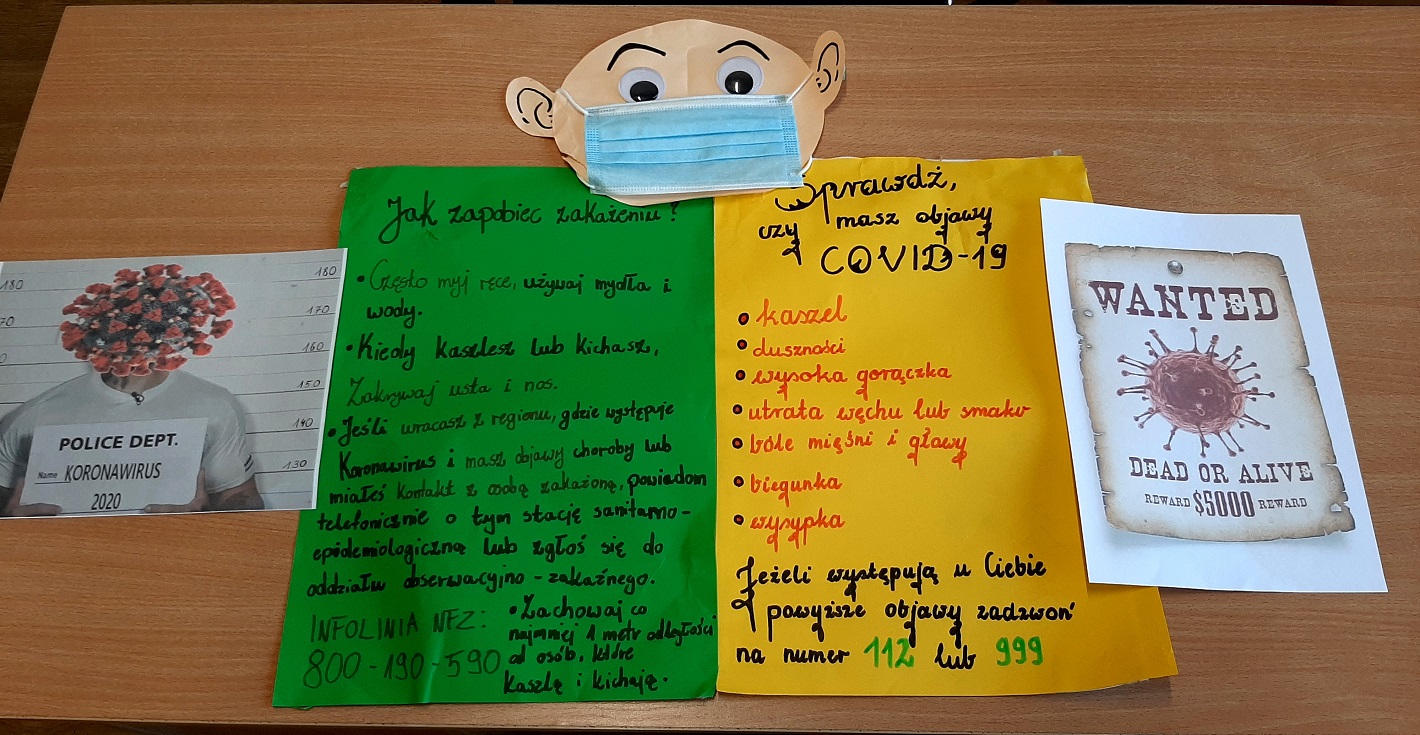 180
180
170
70
160
0
150
140
130
POLICE DEPT.
Name KORONAWIRUS
2020
Jak zapobiec zakażeniu?
• Często myj ręce, używaj mydła i
wody.
• Kiedy kaszlesz lub kichasz,
Zakrywaj usta i nos.
• Jeśli wracasz z regionu, gdzie występuje
Koronawirus i masz objawy choroby lub
miałeś kontakt z osobą zakażoną, powiadom
telefonicznie o tym stację sanitarno-
epidemiologiczną lub zgłoś się do
oddziału obserwacyjno-zakaźnego.
INFOLINIA NFZ:
800-190-590
• Zachowaj co
najmniej 1 metr odległości
od osób, które
kaszlą i kichają.
Sprawdź,
czy masz objawy
COVID-19
• kaszel
• duszności
• wysoka gorączka
• utrata węchu lub smaku
• bóle mięśni i głowy
• biegunka
• wysypka
Jeżeli występują u Ciebie
powyższe objawy zadzwoń
na numer 112 lub 999
WANTED
DEAD OR ALIVE
REWARD $5000 REWARD